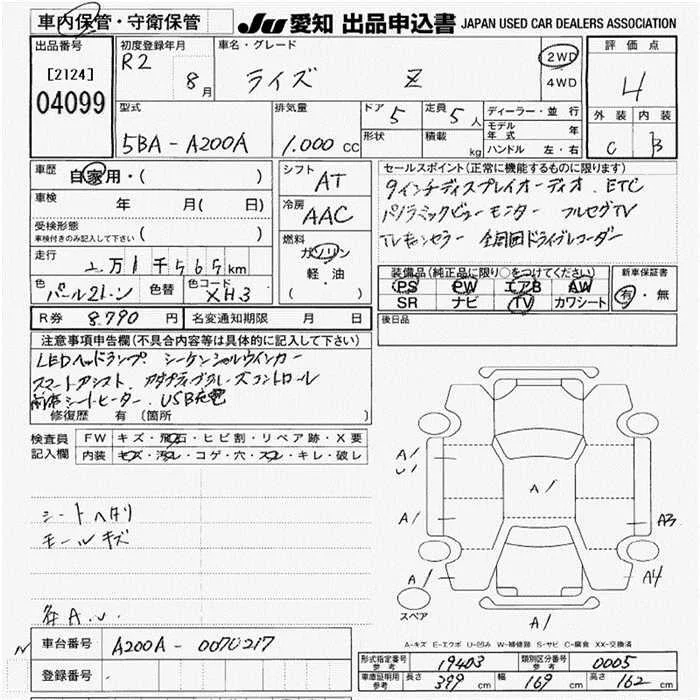 車内保管・守衛保管
JU 愛知 出品申込書 JAPAN USED CAR DEALERS ASSOCIATION
出品番号
[2124]
04099
初度登録年月
R2 8月
車名・グレード
ライズ Z
2WD
4WD
評価点
4
外装 内装
C B
型式
5BA-A200A
排気量
1.000 CC
ドア 5
定員 5 人
形状
積載 kg
ディーラー・並行
モデル年式 年
ハンドル 左・右
車歴
自家用・( )
車検 年 月( 日)
受検形態
車検付きのみ記入して下さい ( )
走行
2万1千565km
色 パール2トーン 色替 色コード XH3
シフト
AT
冷房
AAC
燃料
ガソリン
軽・油
( )
セールスポイント(正常に機能するものに限ります)
9インチディスプレイオーディオ.ETC
パノラミックビューモニター フルセグTV
TVキャンセラー 全周囲ドライブレコーダー
装備品(純正品に限り○をつけてください)
PS PW エアB AW
SR ナビ TV カワシート
新車保証書
有・無
R券 8,790 円
名変通知期限 月 日
後日品
注意事項申告欄(不具合内容等は具体的に記入して下さい)
LEDヘッドランプ. シーケンシャルウインカー
スマートアシスト. アダプティブクルーズコントロール
シートヒーター. USB充電
修復歴 有 (箇所 )
検査員記入欄
FW キズ・飛石・ヒビ割・リペア跡・X要
内装 キズ・汚レ・コゲ・穴・スレ・キレ・破レ
シートヘタリ
モールキズ
各A.U.
A1
U1
A1
A1
A3
A4
A1
A1
スペア
A-キズ E-エクボ U-凹み W-補修跡 S-サビ C-腐食 XX-交換済
車台番号 A200A-0070217
登録番号
形式指定番号 参考 19403
類別区分番号 参考 0005
車庫証明用 参考 長さ 399 cm 幅 169 cm 高さ 162 cm